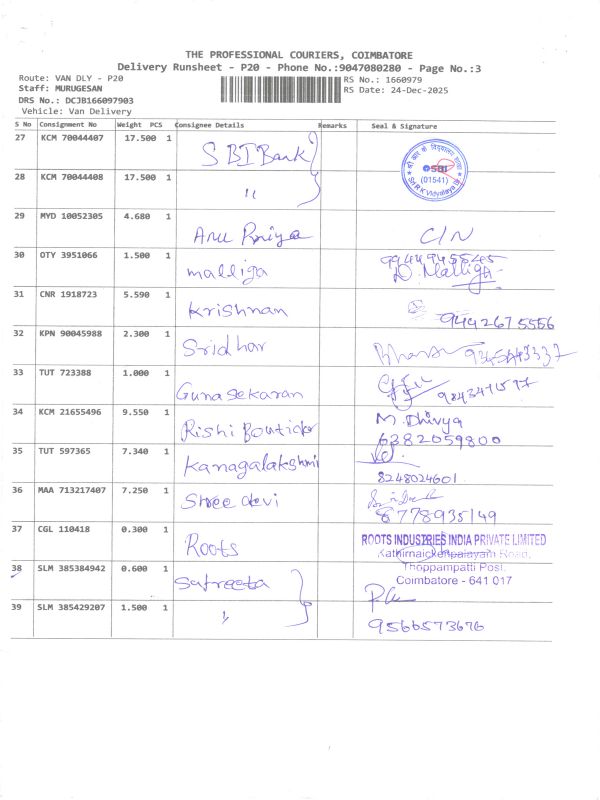 THE PROFESSIONAL COURIERS, COIMBATORE
Delivery Runsheet - P20 - Phone No.:9047080280 - Page No.:3
Route: VAN DLY - P20 RS No.: 1660979
Staff: MURUGESAN RS Date: 24-Dec-2025
DRS No.: DCJB166097903
Vehicle: Van Delivery
S No Consignment No Weight PCS Consignee Details Remarks Seal & Signature
27 KCM 70044407 17.500 1 SBI Bank
SBI
(01541)
28 KCM 70044408 17.500 1 "
29 MYD 10052305 4.680 1 Anu C/N
30 OTY 3951066 1.500 1 malliga
D. Malliga
31 CNR 1918723 5.590 1 Krishnan 9442675556
32 KPN 90045988 2.300 1 Sridhar
33 TUT 723388 1.000 1 Gunasekaran
34 KCM 21655496 9.550 1 Rishi M. Dhivya
6382059800
35 TUT 597365 7.340 1 Kanagalakshmi
8248024601
36 MAA 713217407 7.250 1 Shree devi
8778935149
37 CGL 110418 0.300 1 Roots ROOTS INDUSTRIES INDIA PRIVATE LIMITED
Kathirnaickenpalayam Road,
Thoppampatti Post,
Coimbatore - 641 017
38 SLM 385384942 0.600 1
39 SLM 385429207 1.500 1 "
9566573676